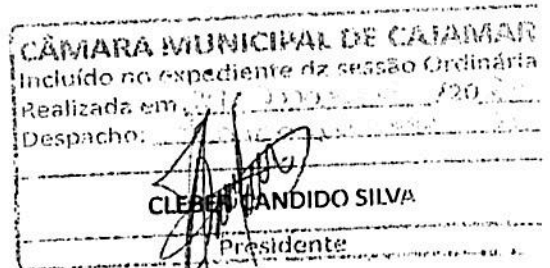 CÂMARA MUNICIPAL DE CAJAMAR
Incluído no expediente da sessão Ordinária
Realizada em /20
Despacho:
CLEBER CANDIDO SILVA
Presidente